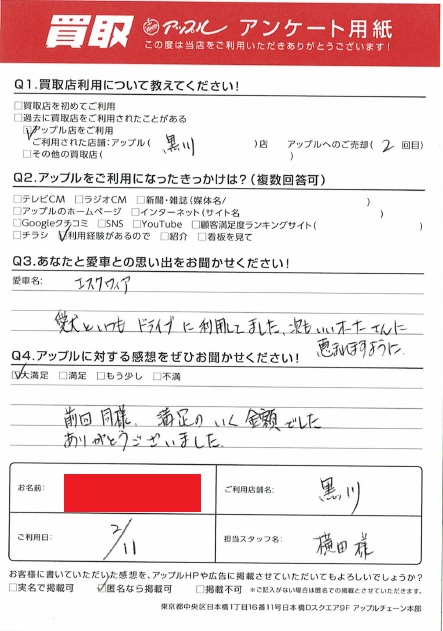 買取 アップル アンケート用紙
この度は当店をご利用いただきありがとうございます!
Q1.買取店利用について教えてください!
□買取店を初めてご利用
□過去に買取店をご利用されたことがある
☑アップル店をご利用
ご利用された店舗:アップル( 黒川 )店 アップルへのご売却( 2 回目)
□その他の買取店( )
Q2.アップルをご利用になったきっかけは?(複数回答可)
□テレビCM □ラジオCM □新聞・雑誌(媒体名/ )
□アップルのホームページ □インターネット(サイト名 )
□Googleクチコミ □SNS □YouTube □顧客満足度ランキングサイト( )
□チラシ ☑利用経験があるので □紹介 □看板を見て
Q3.あなたと愛車との思い出をお聞かせください!
愛車名: エスクァイア
愛犬といつもドライブに利用してました、次もいいオーナーさんに
恵まれますように。
Q4.アップルに対する感想をぜひお聞かせください!
☑大満足 □満足 □もう少し □不満
前回同様、満足のいく金額でした
ありがとうございました。
お名前:
ご利用店舗名: 黒川
ご利用日: 2/11
担当スタッフ名: 横田様
お客様に書いていただいた感想を、アップルHPや広告に掲載させていただいてもよろしいでしょうか?
□実名で掲載可 ☑匿名なら掲載可 □掲載不可 ※ご記入がない場合は匿名での掲載とさせていただきます。
東京都中央区日本橋1丁目16番11号日本橋Dスクエア9F アップルチェーン本部